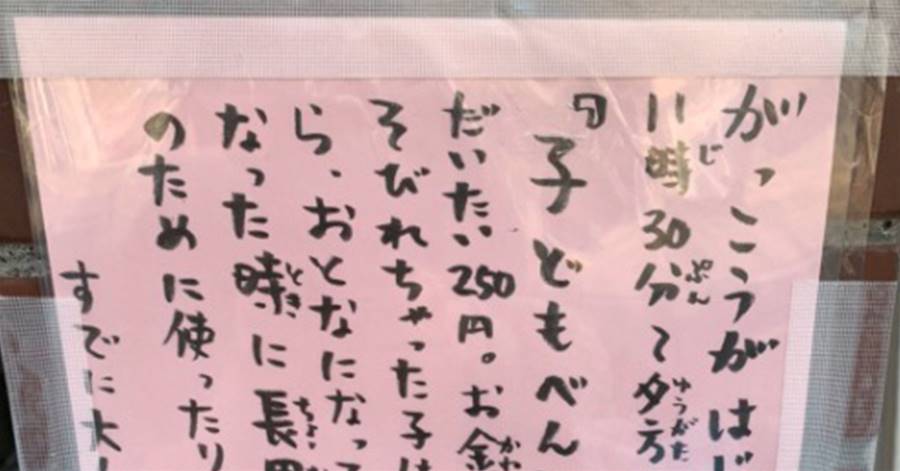 がっこうがはじ
11時30分〜夕方
『子どもべん
だいたい250円。お金
そびれちゃった子は
ら、おとなになって
なった時に長
のために使ったり
すでに大